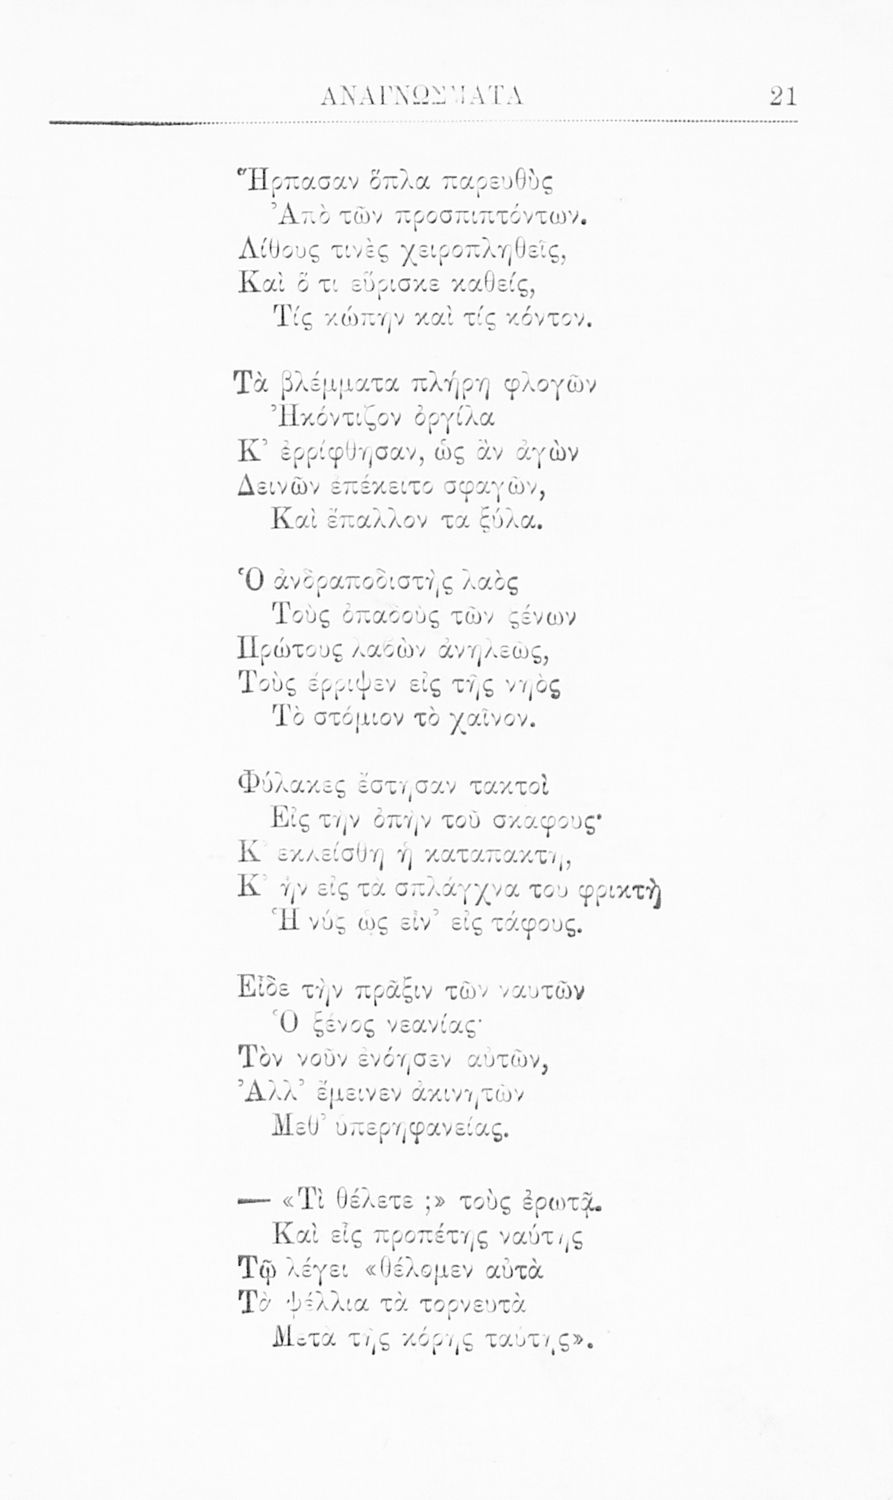 ΑΝΑΓΝΩΣΜΑΤΑ 21
Ἥρπασαν ὅπλα παρευθὺς
Ἀπὸ τῶν προσπιπτόντων.
Λίθους τινὲς χειροπληθεῖς,
Καὶ ὅ τι εὕρισκε καθείς,
Τίς κώπην καὶ τίς κόντον.
Τὰ βλέμματα πλήρη φλογῶν
Ἠκόντιζον ὀργίλα
Κ’ ἐρρίφθησαν, ὡς ἂν ἀγὼν
Δεινῶν ἐπέκειτο σφαγῶν,
Καὶ ἔπαλλον τα ξύλα.
Ὁ ἀνδραποδιστὴς λαὸς
Τοὺς ὀπαδοὺς τῶν ξένων
Πρώτους λαβὼν ἀνηλεῶς,
Τοὺς ἔρριψεν εἰς τῆς νηὸς
Τὸ στόμιον τὸ χαῖνον.
Φύλακες ἔστησαν τακτοὶ
Εἰς τὴν ὀπὴν τοῦ σκαφους·
Κ’ εκλείσθη ἡ καταπακτη,
Κ’ ἦν εἰς τὰ σπλάγχνα του φρικτὴ
Ἡ νύξ ὡς εἶν’ εἰς τάφους.
Εἶδε τὴν πρᾶξιν τῶν ναυτῶν
Ὁ ξένος νεανίας·
Τὸν νοῦν ἐνόησεν αὐτῶν,
Ἀλλ’ ἔμεινεν ἀκινητῶν
Μεθ’ ὑπερηφανείας.
— «Τὶ θέλετε ;» τοὺς ἐρωτᾷ.
Καὶ εἷς προπέτης ναύτης
Τῷ λέγει «θέλομεν αὐτὰ
Τὰ ψέλλια τὰ τορνευτὰ
Μετὰ τῆς κόρης ταύτης».